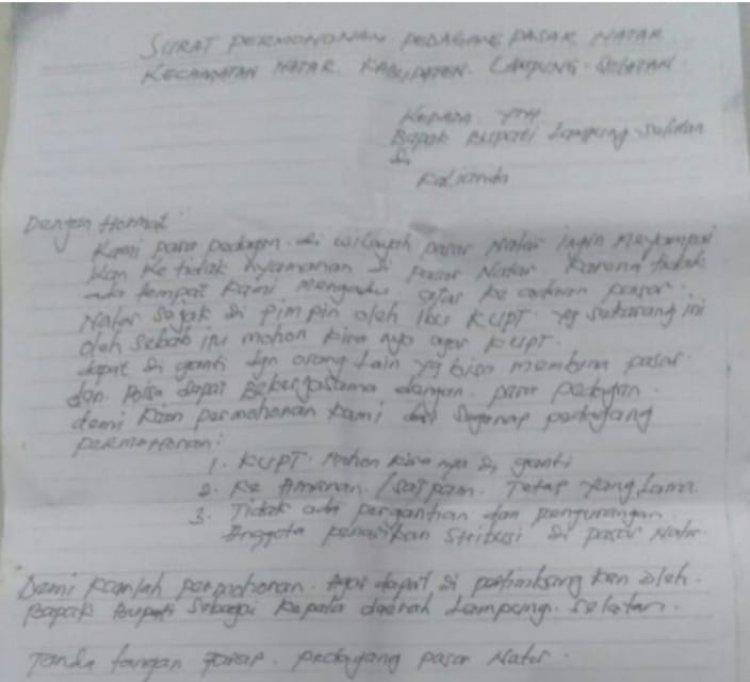 SURAT PERMOHONAN PEDAGANG PASAR NATAR
KECAMATAN NATAR KABUPATEN LAMPUNG SELATAN
Kepada YTH
Bapak Bupati Lampung Selatan
di
Kalianda
Dengan Hormat
Kami para pedagan di wilayah pasar Natar ingin Meyampai
kan ke tidak nyamanan di pasar Natar karena tidak
ada tempat kami mengadu atas ke adaan pasar
Natar sejak di pimpin oleh Ibu KUPT yg sekarang ini
oleh sebab itu mohon kira nya agar KUPT
dapat di ganti dgn orang lain yg bisa membina pasar
dan Bisa dapat Bekerjasama dangan para pedagan
demi kian permohonan kami dari segenap pedagang
permohonan:
1. KUPT Mohon kira nya di ganti
2. Ke Amanan /satpam Tetap yang Lama
3. Tidak ada pergantian dan pengurangan
Anggota penarikan Stribusi di pasar Natar
Demi kianlah permohonan Agar dapat di pertimbang kan oleh
Bapak Bupati Sebagai Kepala daerah Lampung Selatan.
Tanda tangan pedagang pasar Natar.